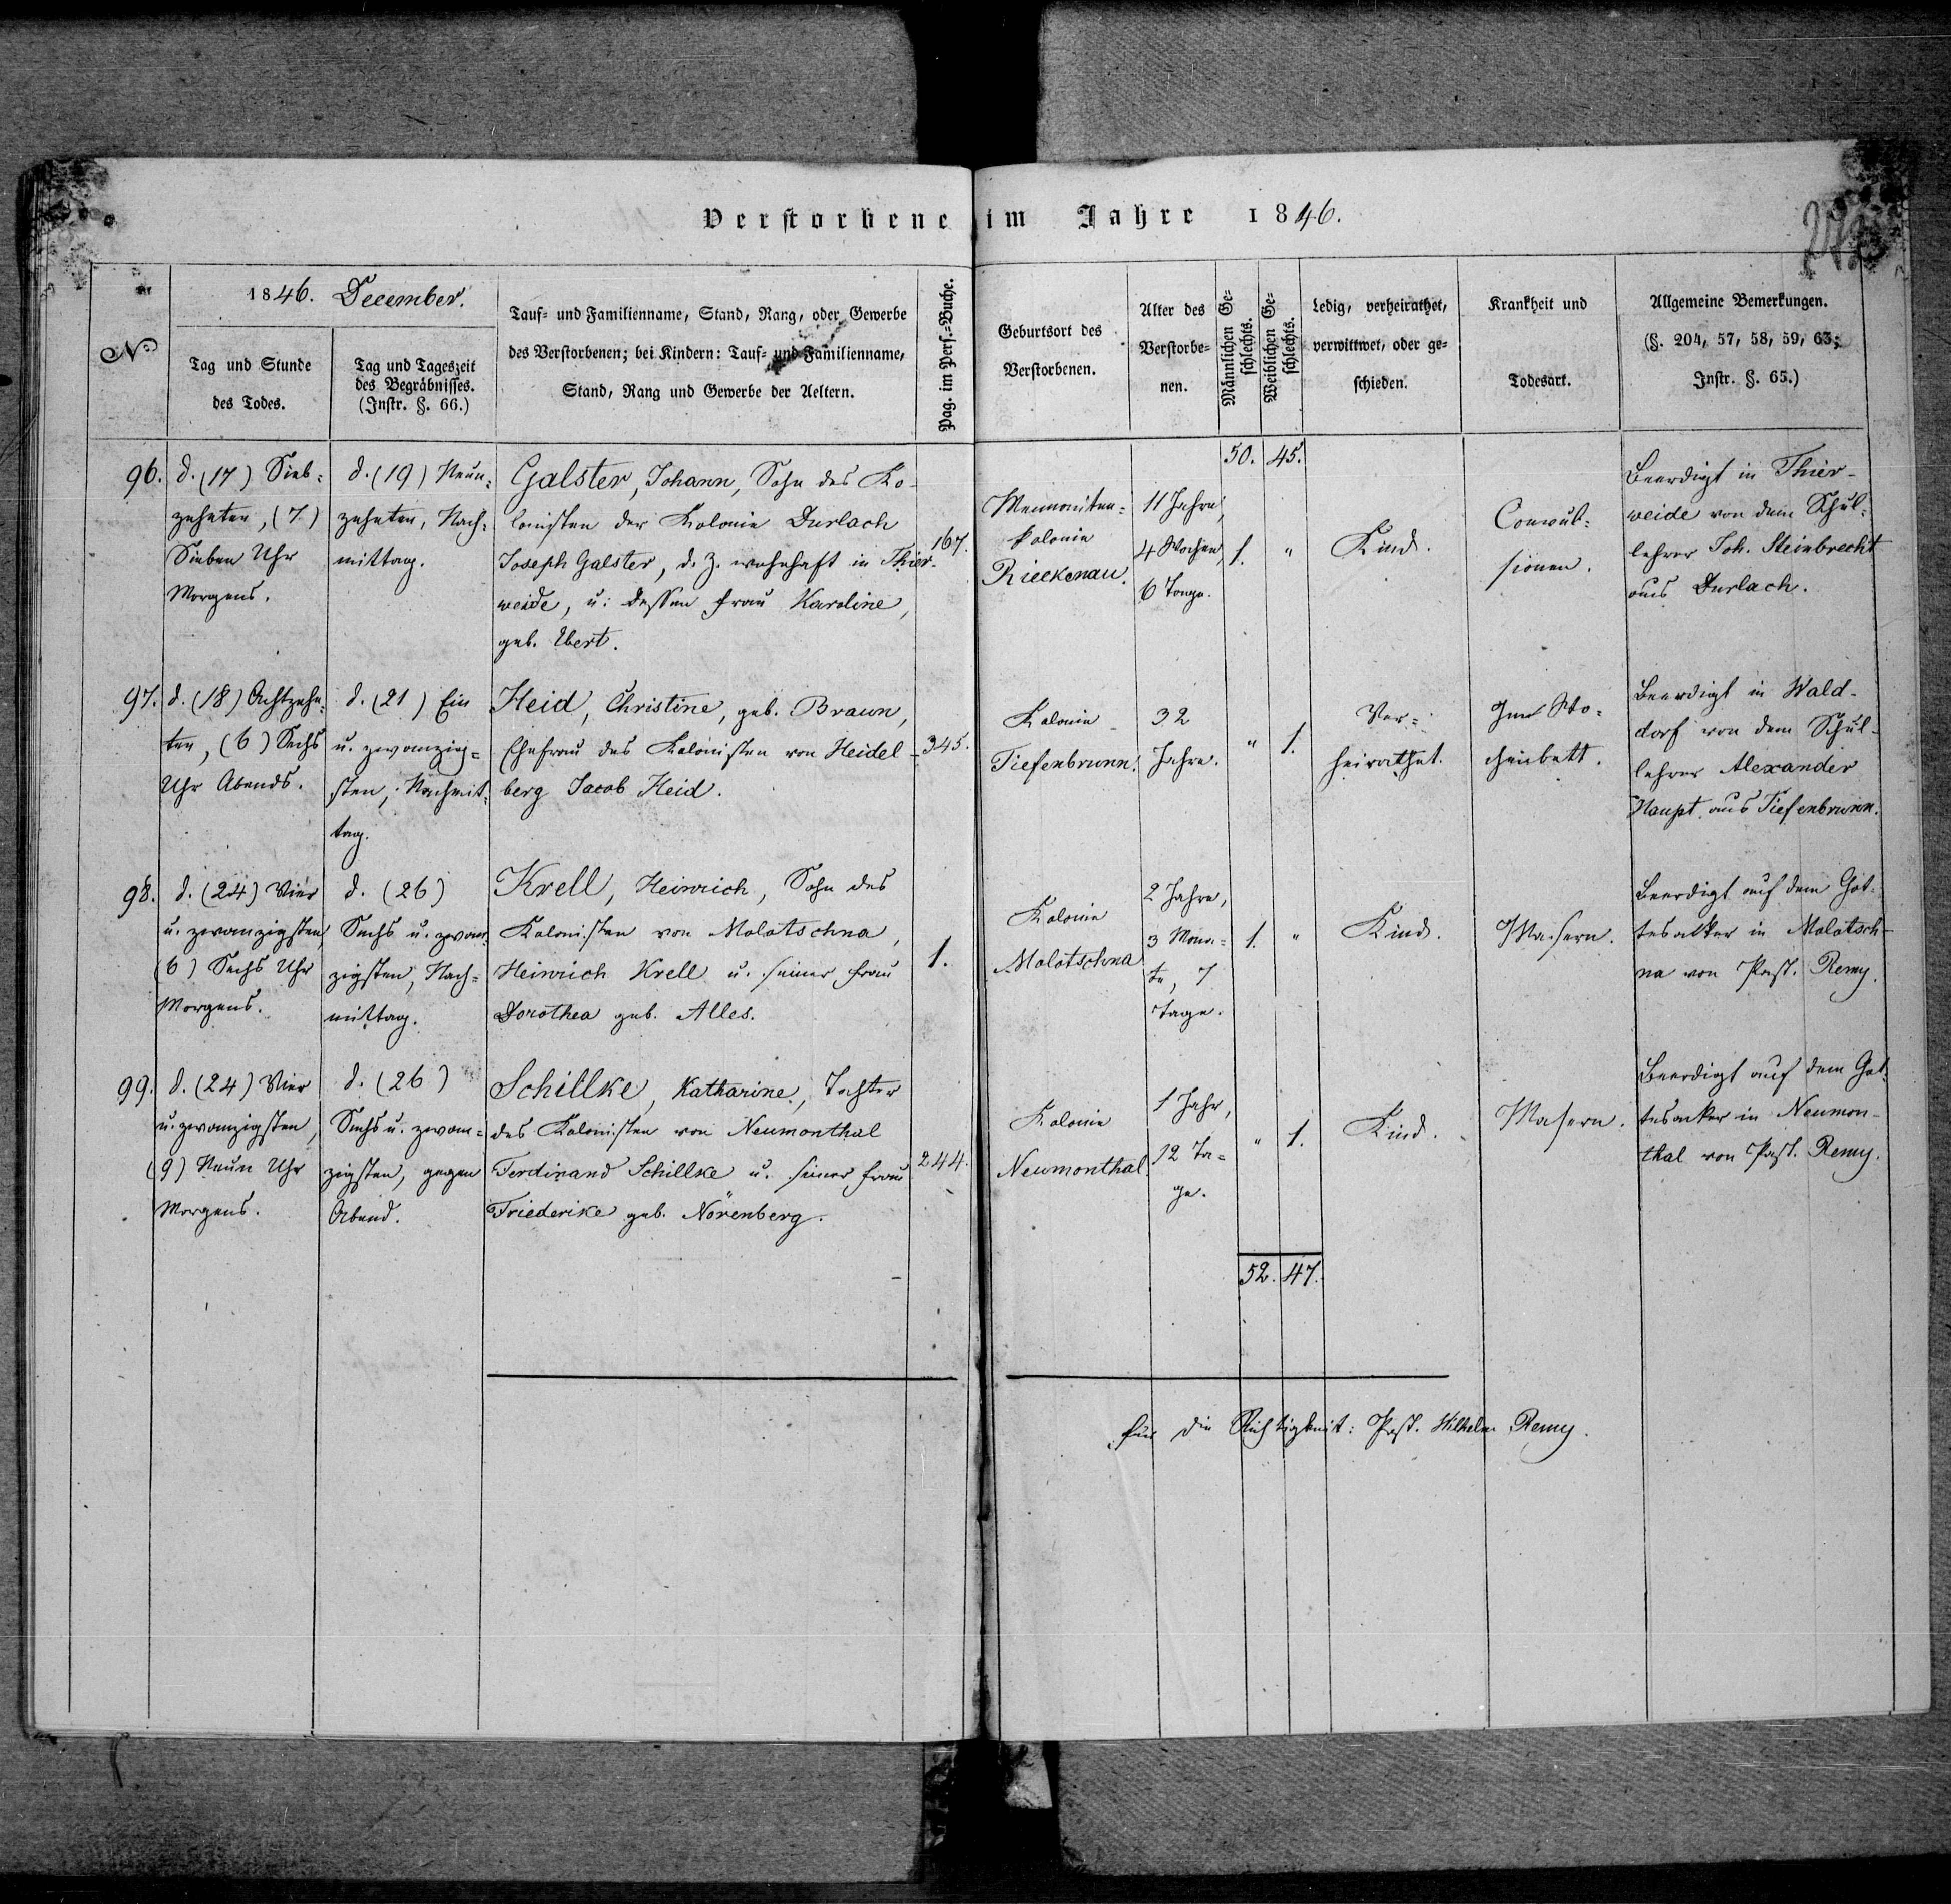 Verstorbene im Jahre 1846.
No
1846. December.
Tag und Stunde
des Todes.
Tag und Tageszeit
des Begräbnisses.
(Instr. §. 66.)
Tauf- und Familienname, Stand, Rang, oder Gewerbe
des Verstorbenen; bei Kindern: Tauf- und Familienname,
Stand, Rang und Gewerbe der Aeltern.
Pag. im Pers.-Buche.
Geburtsort des
Verstorbenen.
Alter des
Verstorbe-
nen.
Männlichen Ge-
schlechts.
Weiblichen Ge-
schlechts.
Ledig, verheirathet,
verwittwet, oder ge-
schieden.
Krankheit und
Todesart.
Allgemeine Bemerkungen.
(§. 204, 57, 58, 59, 63;
Instr. §. 65.)
50. 45.
96.
d. (17) Sieb-
zehnten, (7)
Sieben Uhr
Morgens.
d. (19) Neun-
zehnten, Nach-
mittag.
Galster, Johann, Sohn des Ko-
lonisten der Kolonie Durlach
Joseph Galster, d. Z. wohnhaft in Thier-
weide, u: dessen Frau Karoline,
geb. Ebert.
167.
Mennoniten-
kolonie
Rückenau.
11 Jahre,
4 Wochen,
6 Tage.
1.
"
Kind.
Convul-
sionen.
Beerdigt in Thier-
weide von dem Schul-
lehrer Joh. Steinbrecht
aus Durlach.
97.
d. (18) Achtzehn-
ten, (6) Sechs
Uhr Abends.
d. (21) Ein
u. zwanzig-
sten, Nachmit-
tag.
Heid, Christine, geb. Braun,
Ehefrau des Kolonisten von Heidel-
berg Jacob Heid.
345.
Kolonie
Tiefenbrunn.
32
Jahre.
"
1.
Ver-
heirathet.
Im Wo-
chenbett.
Beerdigt in Wald-
dorf von dem Schul-
lehrer Alexander
Haupt aus Tiefenbrunn.
98.
d. (24) Vier
u. zwanzigsten,
(6) Sechs Uhr
Morgens.
d. (26)
Sechs u. zwan-
zigsten, Nach-
mittag.
Krell, Heinrich, Sohn des
Kolonisten von Molotschna,
Heinrich Krell u. seiner Frau
Dorothea geb. Alles.
1.
Kolonie
Molotschna
2 Jahre,
3 Mona-
te, 7
Tage.
1.
"
Kind.
Masern.
Beerdigt auf dem Got-
tesakker in Molotsch-
na von Past. Remy.
99.
d. (24) Vier
u. zwanzigsten,
(9) Neun Uhr
Morgens.
d. (26)
Sechs u. zwan-
zigsten, gegen
Abend.
Schillke, Katharine, Tochter
des Kolonisten von Neumonthal
Ferdinand Schillke u. seiner Frau
Friederike geb. Nörenberg.
244.
Kolonie
Neumonthal
1 Jahr,
12 Ta-
ge.
"
1.
Kind.
Masern.
Beerdigt auf dem Got-
tesacker in Neumon-
thal von Past. Remy.
52. 47.
Für die Richtigkeit: Past. Wilhelm Remy.